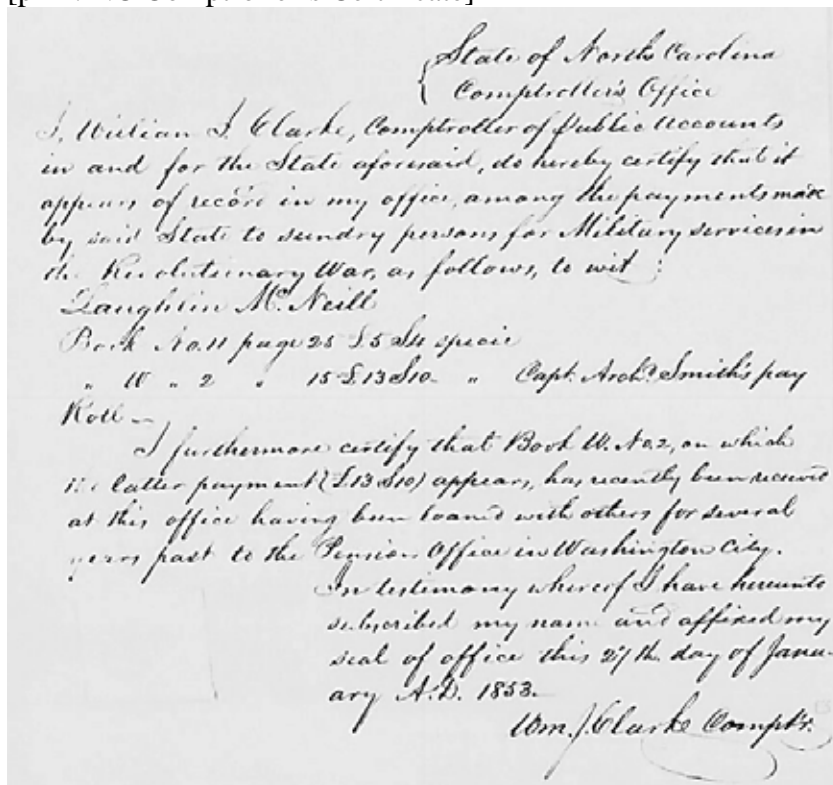 State of North Carolina
Comptroller's Office
I, William J. Clarke, Comptroller of Public Accounts
in and for the State aforesaid, do hereby certify that it
appears of record in my office, among the payments made
by said State to sundry persons for Military services in
the Revolutionary War, as follows, to wit:
Laughlin McNeill
Book No. 11 page 25 £5 S4 specie
" W " 2 " 15 £13 S10 " Capt. Archd. Smith's pay
Roll —
I furthermore certify that Book W. No. 2, on which
the latter payment (£13 S10) appears, has recently been received
at this office having been loaned with others for several
years past to the Pension Office in Washington City.
In testimony whereof I have hereunto
subscribed my name and affixed my
seal of office this 27th day of Janu-
ary A.D. 1853.
Wm. J. Clarke Compt'r.